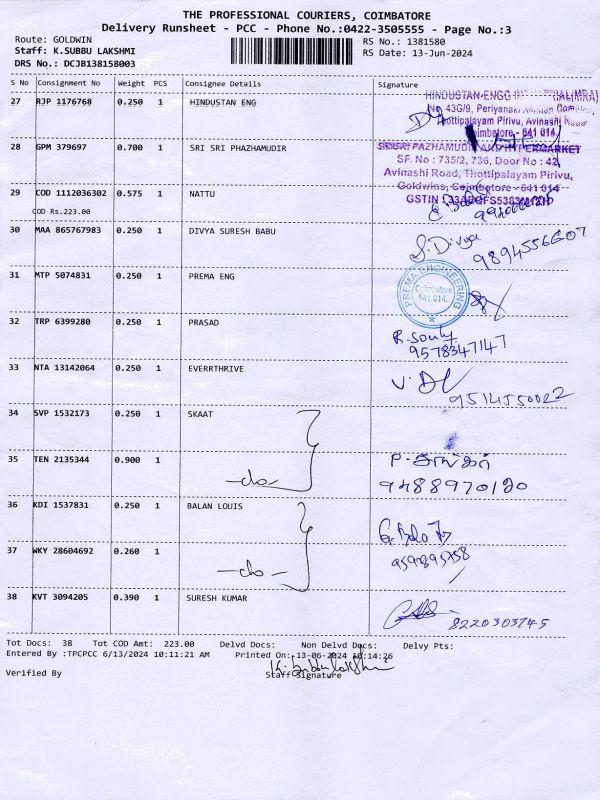 THE PROFESSIONAL COURIERS, COIMBATORE
Delivery Runsheet - PCC - Phone No.:0422-3505555 - Page No.:3
Route: GOLDWIN
Staff: K.SUBBU LAKSHMI
DRS No.: DCJB138158003
RS No.: 1381580
RS Date: 13-Jun-2024
S No Consignment No. Weight PCS Consignee Details Signature
27 RJP 1176768 0.250 1 HINDUSTAN ENG
HINDUSTAN ENGG
No 43G/9, Periyanai
Thottipalayam Pirivu, Avinashi Road
Coimbatore - 641 014.
28 GPM 379697 0.700 1 SRI SRI PHAZHAMUDIR
SRI SRI PAZHAMUDIR HYPERMARKET
SF. No : 735/2, 736, Door No : 42,
Avinashi Road, Thottipalayam Pirivu,
Goldwins, Coimbatore - 641 014
GSTIN :
29 COD 1112036302 0.575 1 NATTU
COD Rs.223.00
30 MAA 865767983 0.250 1 DIVYA SURESH BABU
S. Divya
9894556607
31 MTP 5074831 0.250 1 PREMA ENG
PREMA ENGINEERING
Coimbatore
641 014.
32 TRP 6399280 0.250 1 PRASAD
9578347147
33 NTA 13142064 0.250 1 EVERRTHRIVE
9514550022
34 SVP 1532173 0.250 1 SKAAT
35 TEN 2135344 0.900 1
-do-
9488970120
36 KDI 1537831 0.250 1 BALAN LOUIS
37 WKY 28604692 0.260 1
-do-
38 KVT 3094205 0.390 1 SURESH KUMAR
8220303745
Tot Docs: 38 Tot COD Amt: 223.00 Delvd Docs: Non Delvd Docs: Delvy Pts:
Entered By :TPCPCC 6/13/2024 10:11:21 AM Printed On:13-06-2024 10:14:26
Verified By
Staff Signature